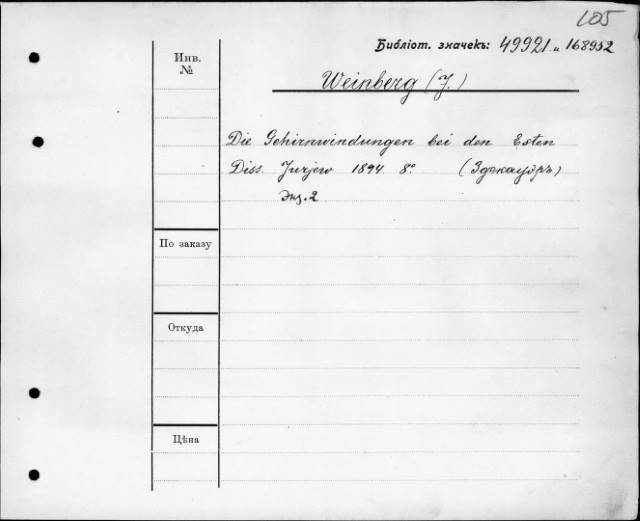 105
Библіот. значекъ: 49921 и 168952
Инв. №
Weinberg (J.)
Die Gehirnwindungen bei den Esten
Diss. Jurjew 1894. 8º (Здекауэръ)
Экз. 2
По заказу
Откуда
Цѣна